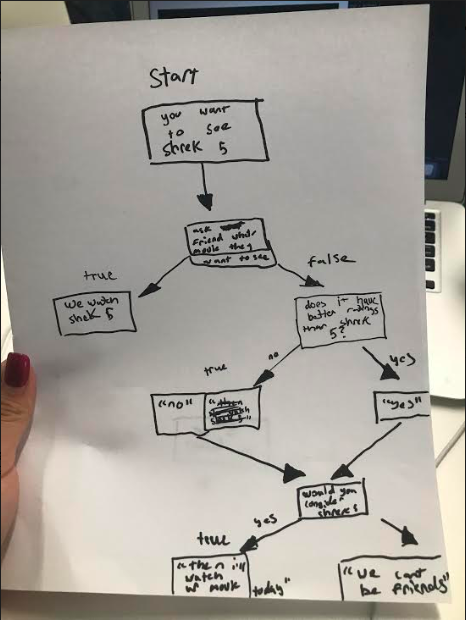 Start
you want
to see
shrek 5
ask
friend what
movie they
want to see
true
false
we watch
shek 5
does it have
better ratings
than shrek
5?
true
no
yes
"no"
"then
"yes"
would you
consider
shrek 5
yes
true
"then i'll
watch
ur movie
today"
"we cant
be friends"